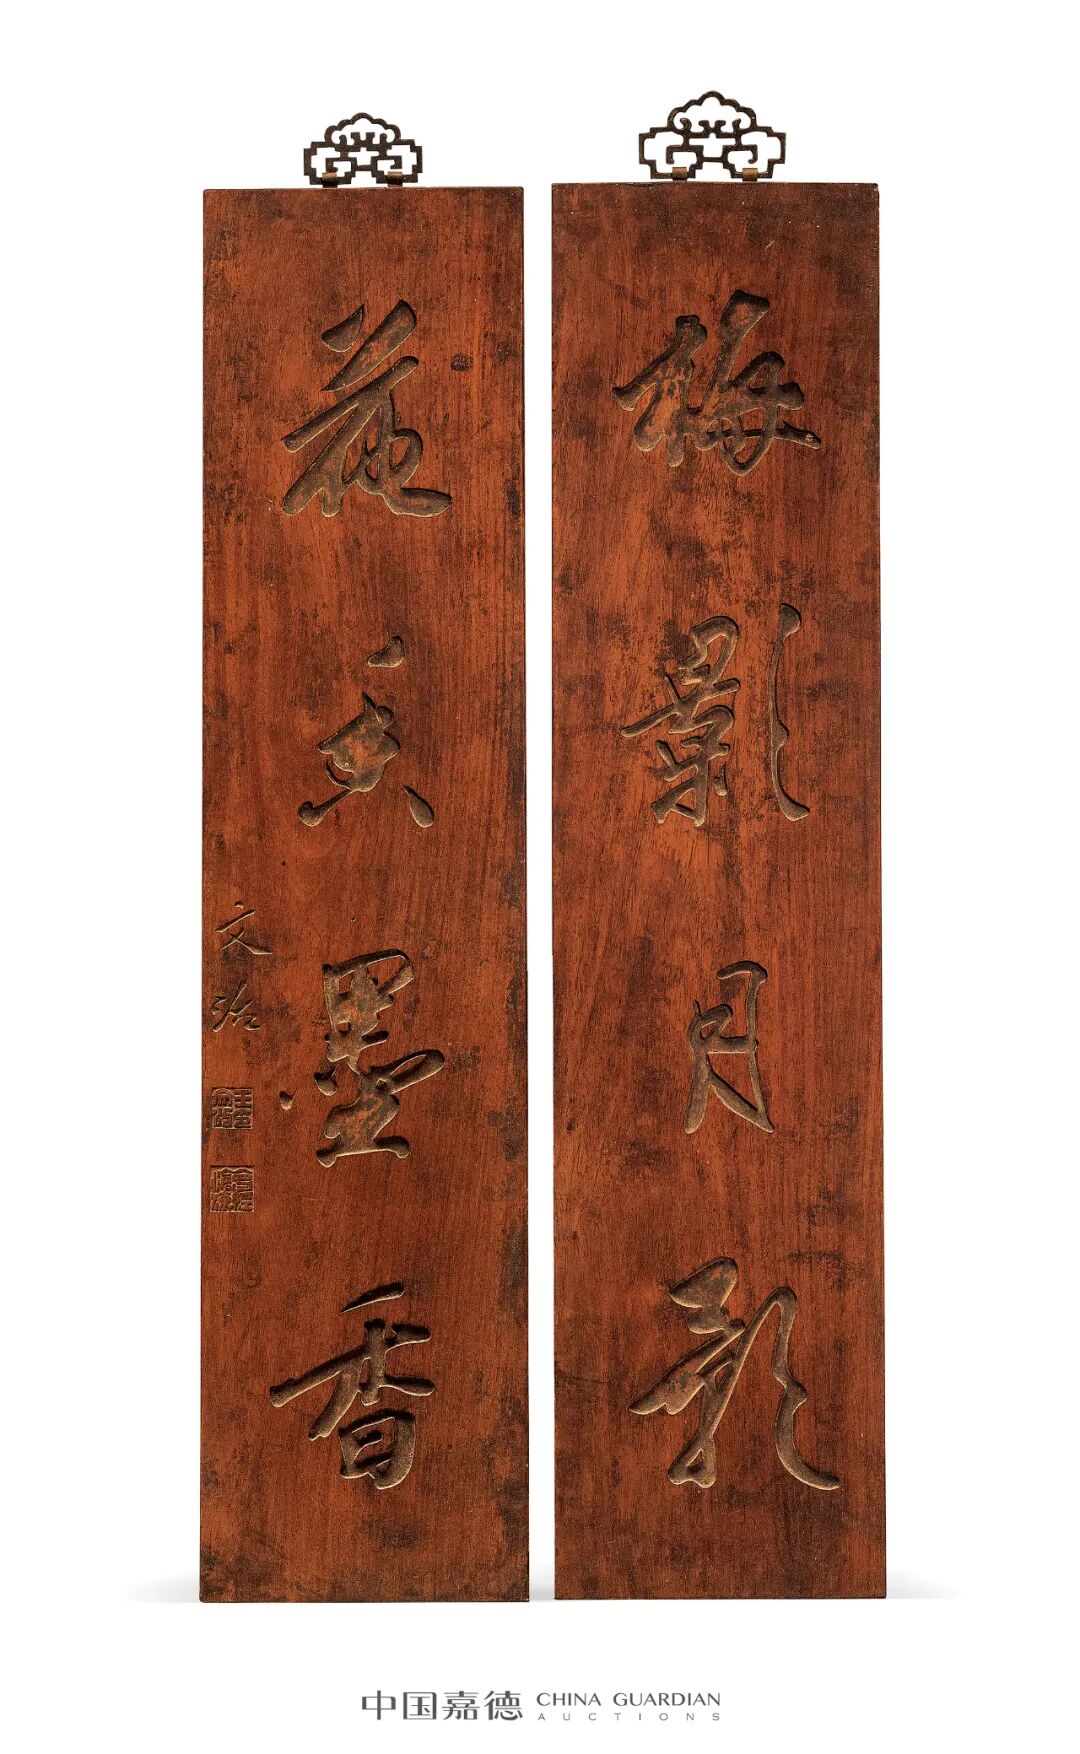 梅影月影
花香墨香
文治
中国嘉德 CHINA GUARDIAN
AUCTIONS